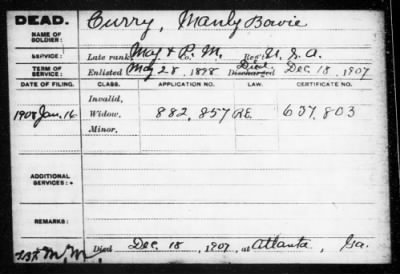 DEAD.
Curry, Manly Bowie
NAME OF
SOLDIER:
SERVICE:
Late rank, Maj. & P. M. Reg't U. S. A.
TERM OF
SERVICE:
Enlisted May 28, 1898 Discharged Died Dec. 18, 1907
DATE OF FILING.
CLASS.
APPLICATION NO.
LAW.
CERTIFICATE NO.
Invalid,
1908 Jan. 16
Widow,
882,857
637,803
Minor,
ADDITIONAL
SERVICES:
REMARKS:
Died Dec. 18, 1907, at Atlanta, Ga.